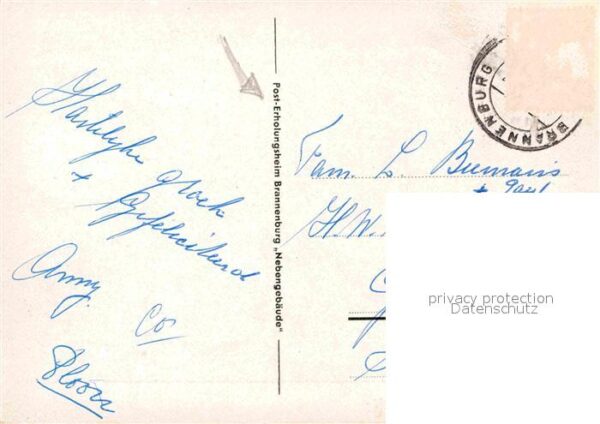 Hartelijke groet
+
Gefeliciteerd
Anny.
Co
Post-Erholungsheim Brannenburg „Nebengebäude“
BRANNENBURG
BRANNENBURG
Fam. L. Biemans
+ Paul
H.W.
privacy protection
Datenschutz